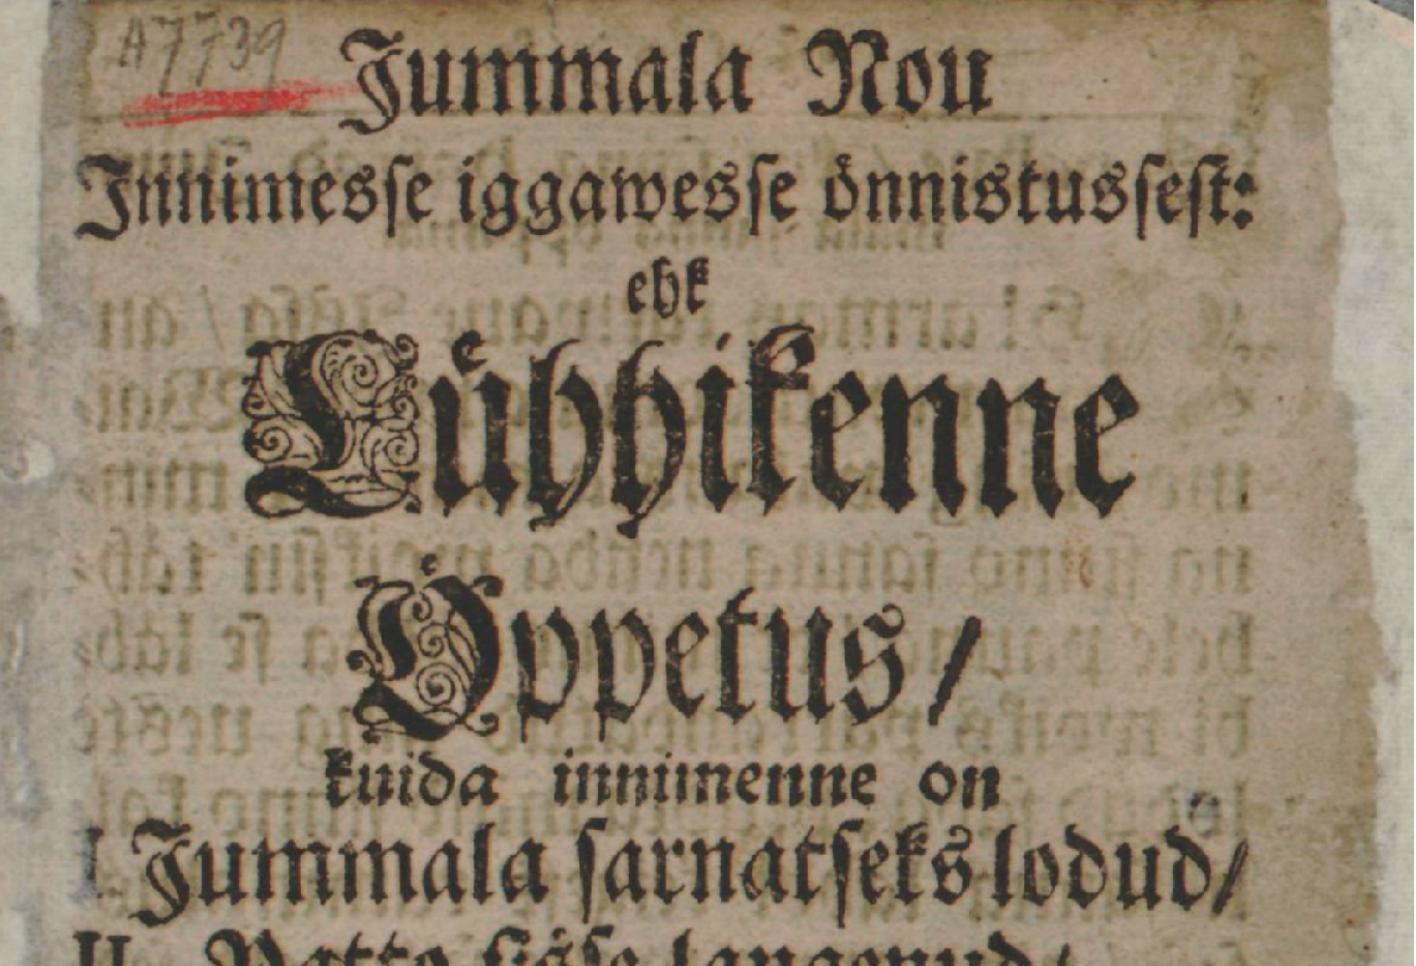 A7739
Jummala Nou
Innimesse iggawesse önnistussest:
ehk
Lühhikenne
Öppetus/
kuida innimenne on
I. Jummala sarnatseks lodud/
II. Patto sisse langenud/